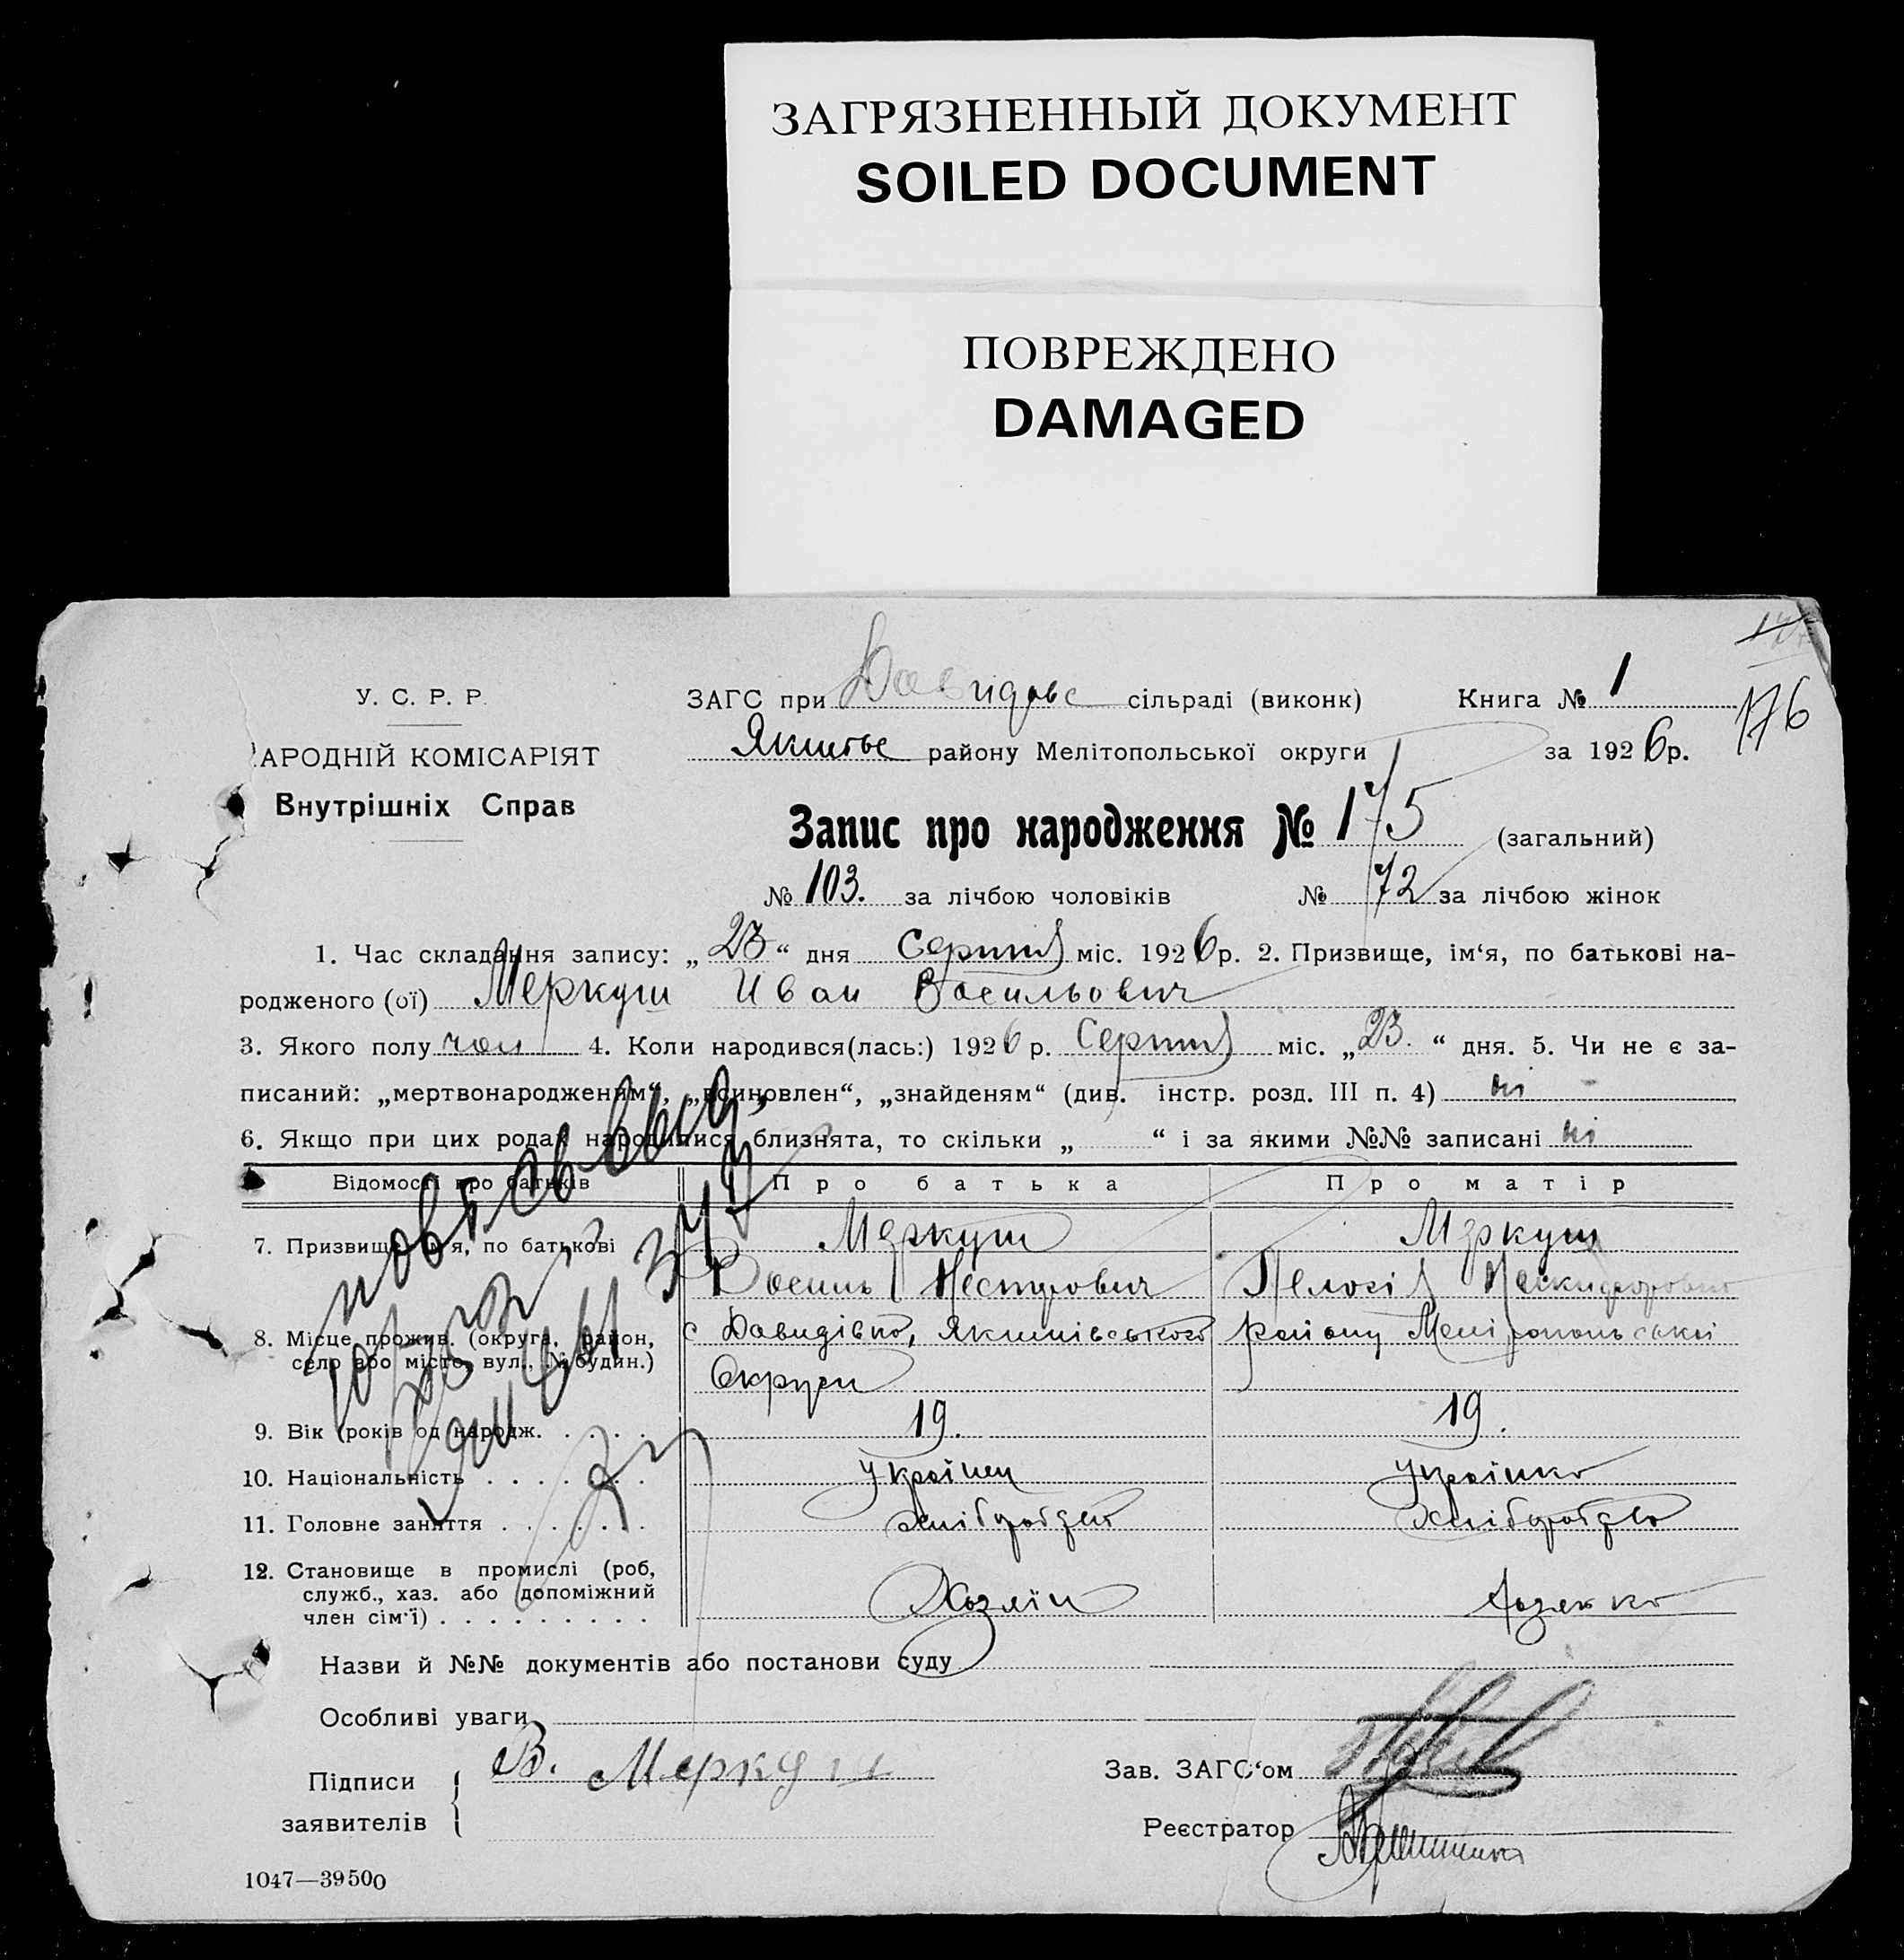 ЗАГРЯЗНЕННЫЙ ДОКУМЕНТ
SOILED DOCUMENT
ПОВРЕЖДЕНО
DAMAGED
176
У. С. Р. Р.
ЗАГС при Давидовс сільраді (виконк) Книга № 1
АРОДНІЙ КОМІСАРІЯТ
району Мелітопольської округи за 1926 р.
Внутрішніх Справ
Запис про народження № 175 (загальний)
№ 103. за лічбою чоловіків № 72 за лічбою жінок
1. Час складання запису: „23“ дня Серпня міс. 1926 р. 2. Призвище, ім‘я, по батькові на-
родженого (ої) Меркуш Иван Васильович
3. Якого полу чол 4. Коли народився(лась:) 1926 р. Серпня міс. „23.“ дня. 5. Чи не є за-
писаний: „мертвонародженим“, „всиновлен“, „знайденям“ (див. інстр. розд. III п. 4) ні
6. Якщо при цих родах народилися близнята, то скільки „ “ і за якими №№ записані ні
Відомості про батьків Про батька Про матір
7. Призвище, ім‘я, по батькові Меркуш Меркуш
Василь Нестерович Пелагія
8. Місце прожив. (округа, район, село або місто, вул., № будин.) с Давидівка, Якимівського району Мелітопольської
Округи
9. Вік (років од народж. . . . . 19. 19.
10. Національність . . . . . . . Українец Українка
11. Головне заняття . . . . . . . хлібороб
12. Становище в промислі (роб,
служб., хаз. або допоміжний
член сім‘ї) . . . . . . . . . Хозяїн
Назви й №№ документів або постанови суду
Особливі уваги
Підписи
заявителів
В. Меркуш
Зав. ЗАГС‘ом
Реєстратор
1047—39500